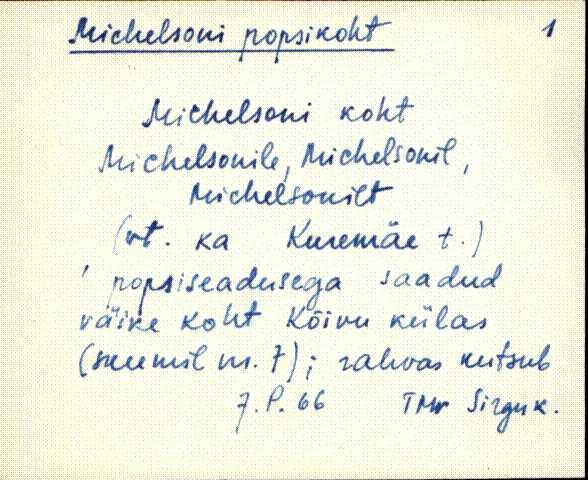 Michelsoni popsikoht 1
Michelsoni koht
Michelsonile, Michelsonil,
Michelsonilt
(vt. ka Kuremäe t.)
' popsiseadusega saadud
väike koht Kõivu külas
(skeemil nr. 7); rahvas kutsub
J. P. 66 TMr Sirguk.